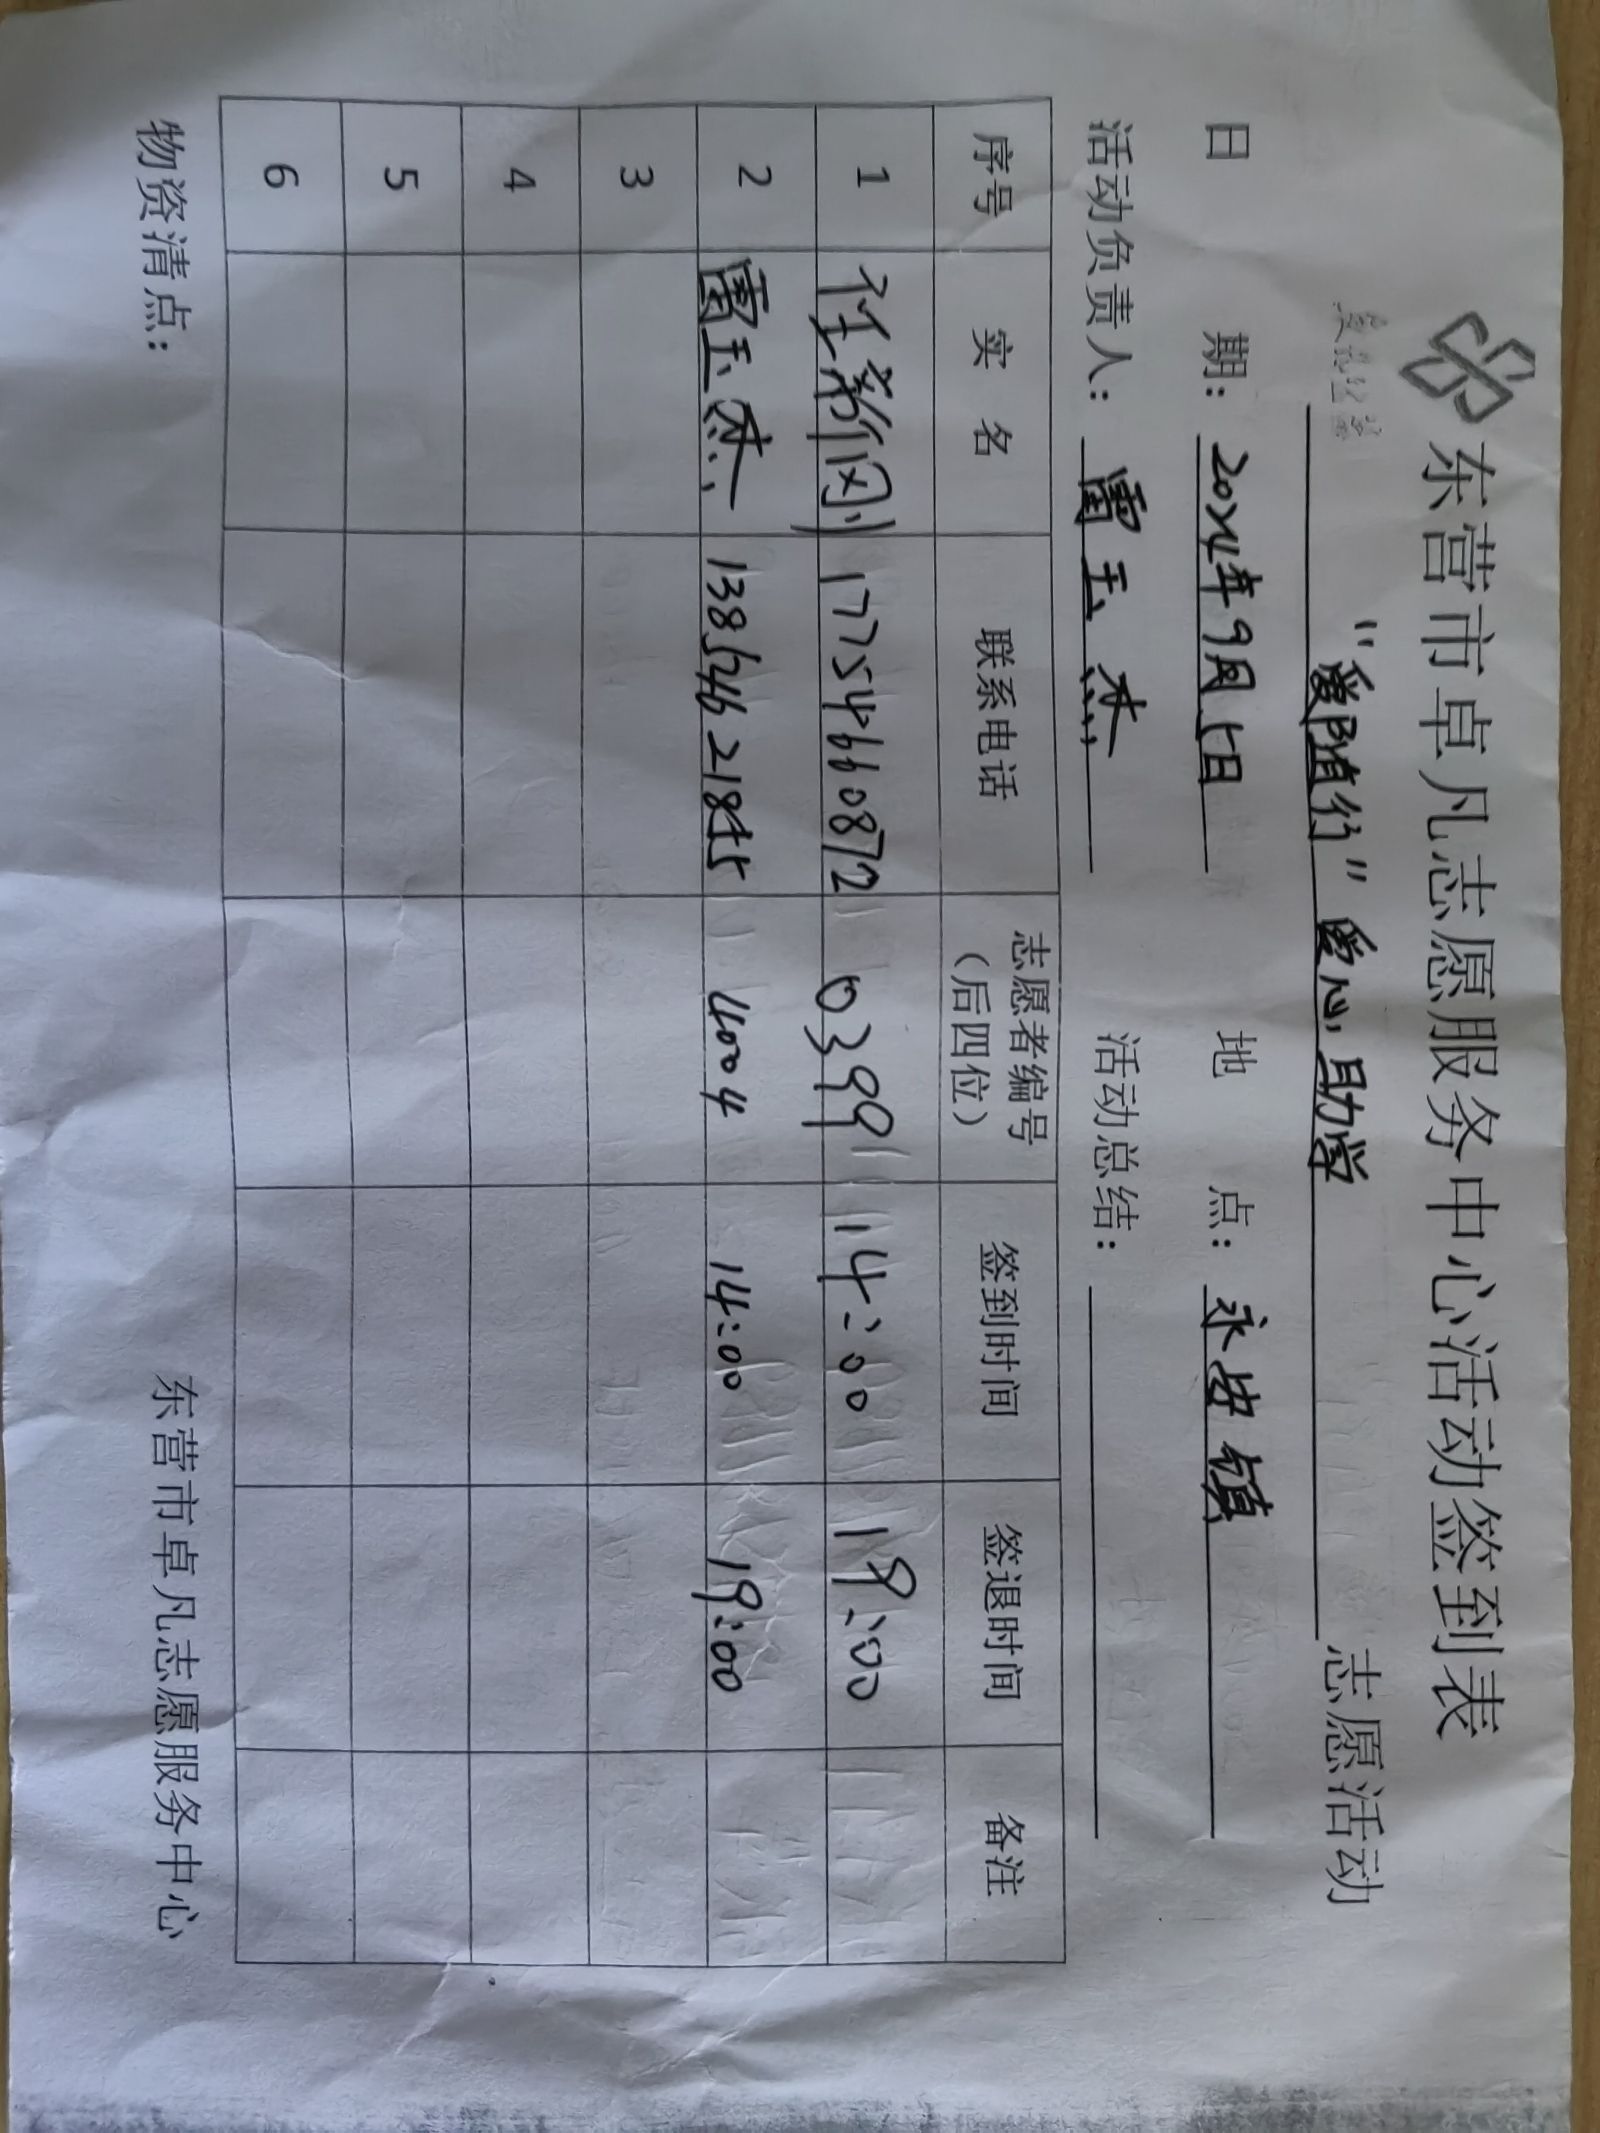 东营市卓凡志愿服务中心活动签到表
"爱随行"爱心助学 志愿活动
日 期：2024年9月5日 地 点：永安镇
活动负责人：雷玉杰 活动总结：
序号 实 名 联系电话 志愿者编号（后四位） 签到时间 签退时间 备注
1 任新刚 17754660872 0399 14:00 19:00
2 雷玉杰 13854621855 4004 14:00 19:00
3
4
5
6
物资清点：
东营市卓凡志愿服务中心